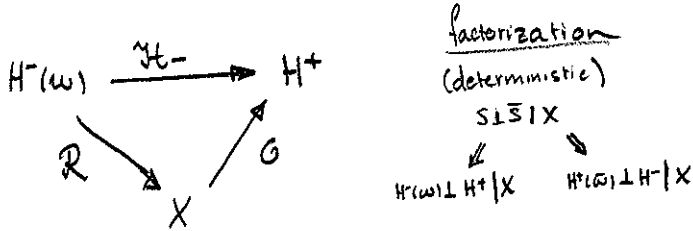 ℋ₋
H⁻(w) H⁺
R G
X
factorization
(deterministic)
S ⊥ S̄ | X
H⁻(w) ⊥ H⁺ | X H⁺(w̄) ⊥ H⁻ | X